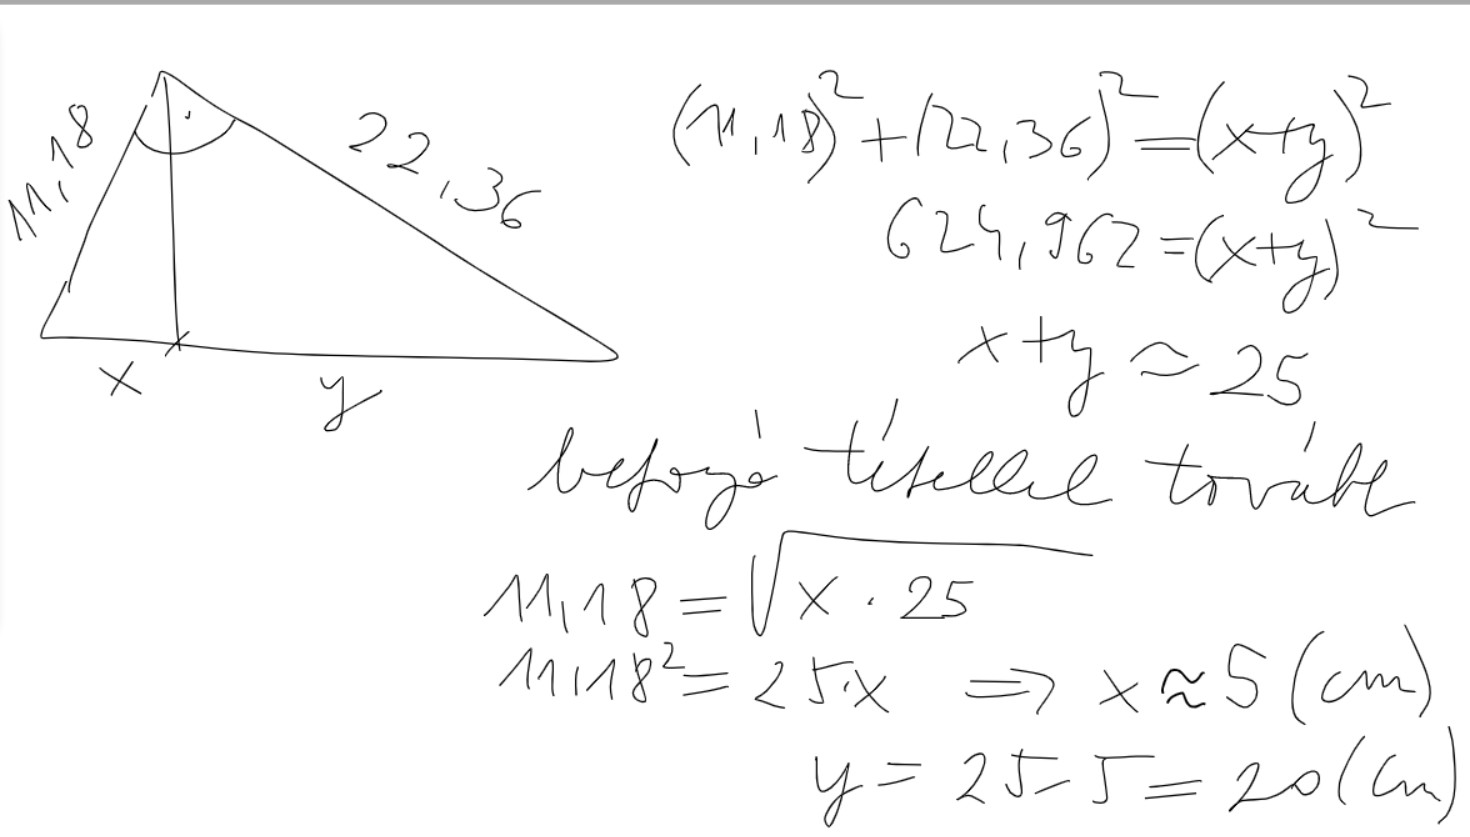 11,18
22,36
x
y
(11,18)²+(22,36)²=(x+y)²
624,962=(x+y)²
x+y≈25
befogó tétellel tovább
11,18=√x·25
11,18²=25·x ⇒ x≈5 (cm)
y=25-5=20(cm)